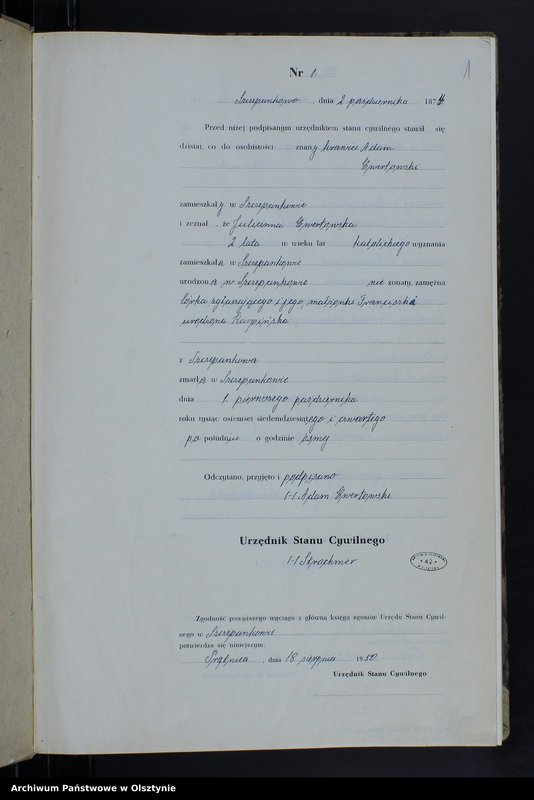 1
Nr 1.
Szczepankowo, dnia 2 października 1874
Przed niżej podpisanym urzędnikiem stanu cywilnego stawił się
dzisiaj, co do osobistości znany krawiec Adam
Ewertowski
zamieszkały w Szczepankowie
i zeznał, że Julianna Ewertowska
2 lata w wieku lat katolickiego wyznania
zamieszkała w Szczepankowie
urodzona w Szczepankowie nie zonaty, zamężna
córka zgłaszającego i jego małżonki Franciszka
urodzona Karpińska
z Szczepankowa
zmarła w Szczepankowie
dnia 1. pierwszego października
roku tysiąc osiemset siedemdziesiątego i czwartego
po południu o godzinie ósmej
Odczytano, przyjęto i podpisano
/-/ Adam Ewertowski.
Urzędnik Stanu Cywilnego
/-/
42
Zgodność powyższego wyciągu z główną księgą zgonów Urzędu Stanu Cywil-
nego w Szczepankowie
potwierdza się niniejszym.
Prątnica, dnia 18 sierpnia 1950
Urzędnik Stanu Cywilnego
Archiwum Państwowe w Olsztynie